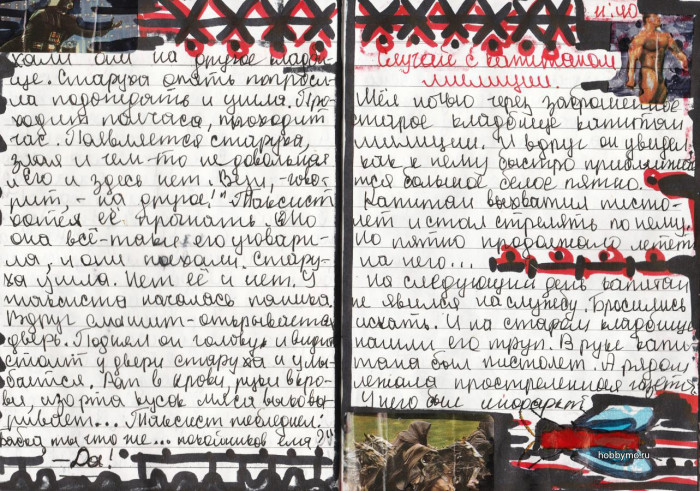 хали они на другое кладби-
ще. Старуха опять попроси-
ла подождать и ушла. Про-
ходит полчаса, проходит
час. Появляется старуха,
злая и чем-то недовольная
его и здесь нет. Вези,-гово-
рит,- на другое!" Таксист
хотел её прогнать. Но
она всё-таки его уговари-
ла, и они поехали. Стару-
ха ушла. Нет её и нет. У
таксиста началась паника.
Вдруг слышит-открывается
дверь. Поднял он голову и видит
стоит у двери старуха и улы-
бается. Рот в крови, руки в кро-
ви, изо рта кусок мяса
Таксист побледнел:
ты что же... покойников ела?"
-Да!
11:40
Случай с капитаном
милиции.
Шёл ночью через заброшенное
старое кладбище капитан
милиции. И вдруг он увидел,
как к нему быстро приближае
тся большое белое пятно.
Капитан выхватил писто-
лет и стал стрелять по нему.
Но пятно продолжало лететь
на него...
На следующий день капитан
не явился на службу. Бросились
искать. И на старом кладбище
нашли его труп. В руке капи-
тана был пистолет. А рядом
лежала простреленная газета.
У него был инфаркт
hobbymo.ru